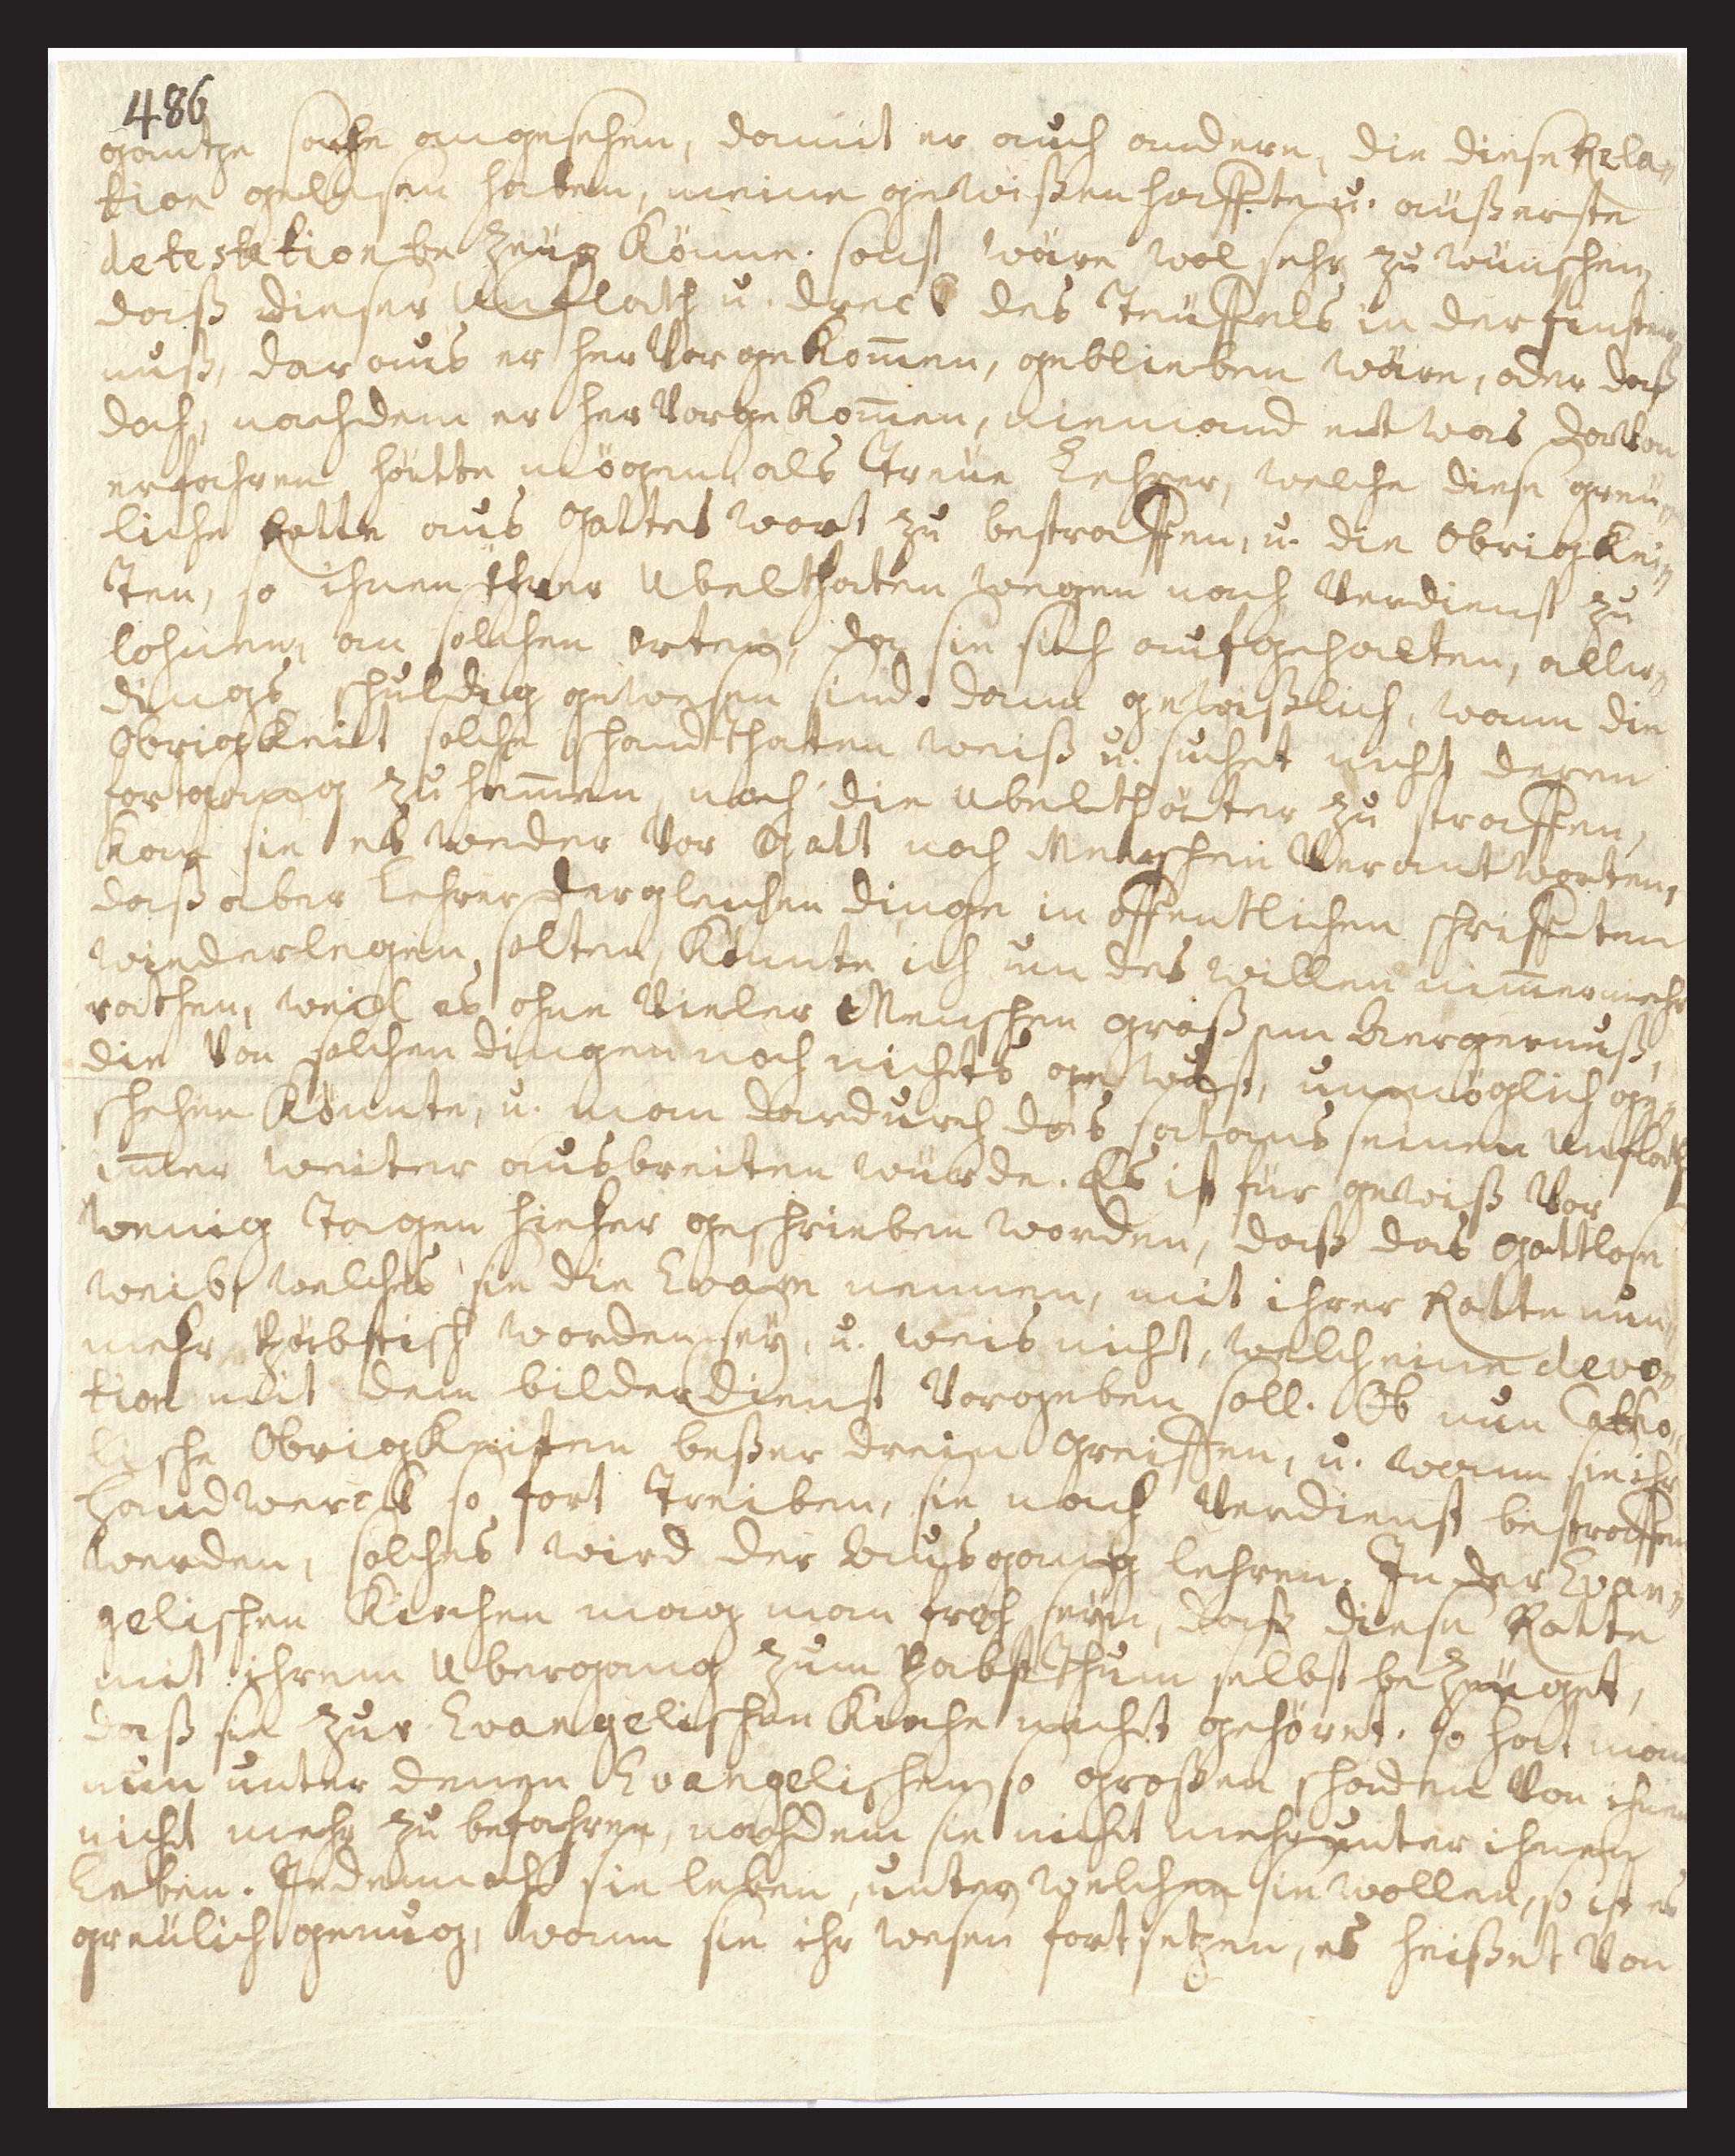 486
gantze sache angesehen, damit er auch andern, die diese Rela-
tion gelesen haben, meine gewißenhaffte u. äußerste
detestation bezeüg. könne. sonst wäre wol sehr zu wünschen,
daß dieser Unflath u. dreck des Teüffels in der finster-
nuß, daraus er hervorgekom̄en, geblieben wäre, oder daß
doch, nachdem er hervorgekom̄en, niemand etwas darvon
erfahren hätte mögen, als Treüe Lehrer, welche diese greü-
liche Rotte aus Gottes wort zu bestraffen, u. die Obrigkei-
ten, so ihnen ihrer Ubelthaten wegen nach Verdienst zu
lohnen, an solchen orten, da sie sich aufgehalten, aller-
dings schuldig gewesen sind. dann gewißlich, wann die
Obrigkeit solche schandthaten weiß u. suchet nicht deren
fortgang zu hem̄en, noch die Ubelthäter zu straffen,
kan sie es weder vor Gott noch Menschen verantworten,
daß aber Lehrer dergleichen dinge in öffentlichen schrifften
wiederlegen solten, könnte ich um des willen nim̄ermehr
rathen, weil es ohne vieler Menschen großem Aergernuß,
die von solchen dingen noch nichts gewust, unmöglich ge-
schehen könnte, u. man dardurch des satans seinen Unflath
im̄er weiter ausbreiten würde. Es ist für gewiß vor
wenig Tagen hieher geschrieben worden, daß das gottlose
weib, welches sie die Evam nennen, mit ihrer Rotte nun-
mehr Päbstisch worden seÿ, u. weis nicht, welch eine devo-
tion mit dem bilderdienst vorgeben soll. Ob nun Catho-
lische Obrigkeiten beßer drein greiffen, u. wann sie ihr
Handwerck so fort Treiben, sie nach Verdienst bestraffen
werden, solches wird der Ausgang lehren. In der Evan-
gelischen Kirchen mag man froh seÿn, daß diese Rotte
mit ihrem Ubergang zum Pabstthum selbst bezeüget,
daß sie zur Evangelischen Kirche nicht gehöret. so hat man
nun unter denen Evangelischen so großen schaden von ihnen
nicht mehr zu befahren, nachdem sie nicht mehr unter ihnen
Leben. Jedennoch sie leben, unter welchen sie wollen, so ist es
greülich genug, wann sie ihr wesen fortsetzen, es heißet von